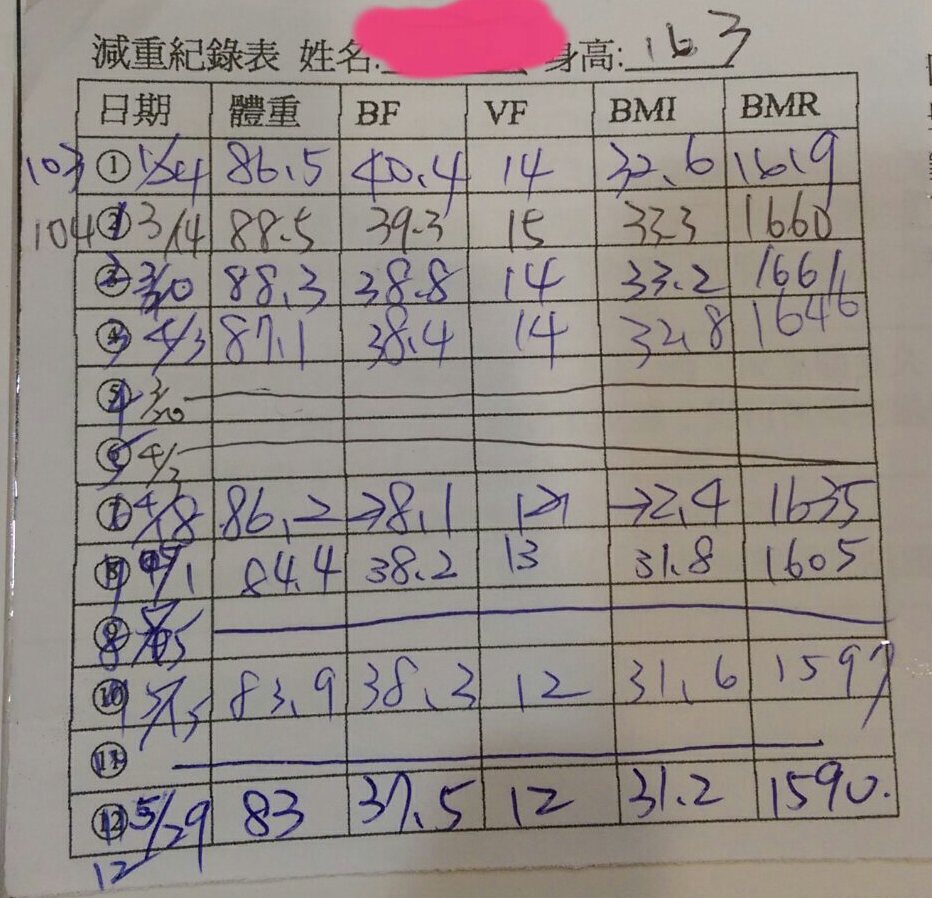 減重紀錄表 姓名: 身高: 163
日期 體重 BF VF BMI BMR
103 ① 86.5 40.4 14 32.6 1619
104 3/14 88.5 39.3 15 33.3 1660
3/20 88.3 38.8 14 33.2 1661
4/3 87.1 38.4 14 32.8 1646
⑤ 3/20
⑥ 4/3
4/18 86.2 38.1 32.4 1635
/1 84.4 38.2 13 31.8 1605
⑨
⑩ 5/15 83.9 38.3 12 31.6 1597
⑪
⑫ 5/29 83 37.5 12 31.2 1590.
12